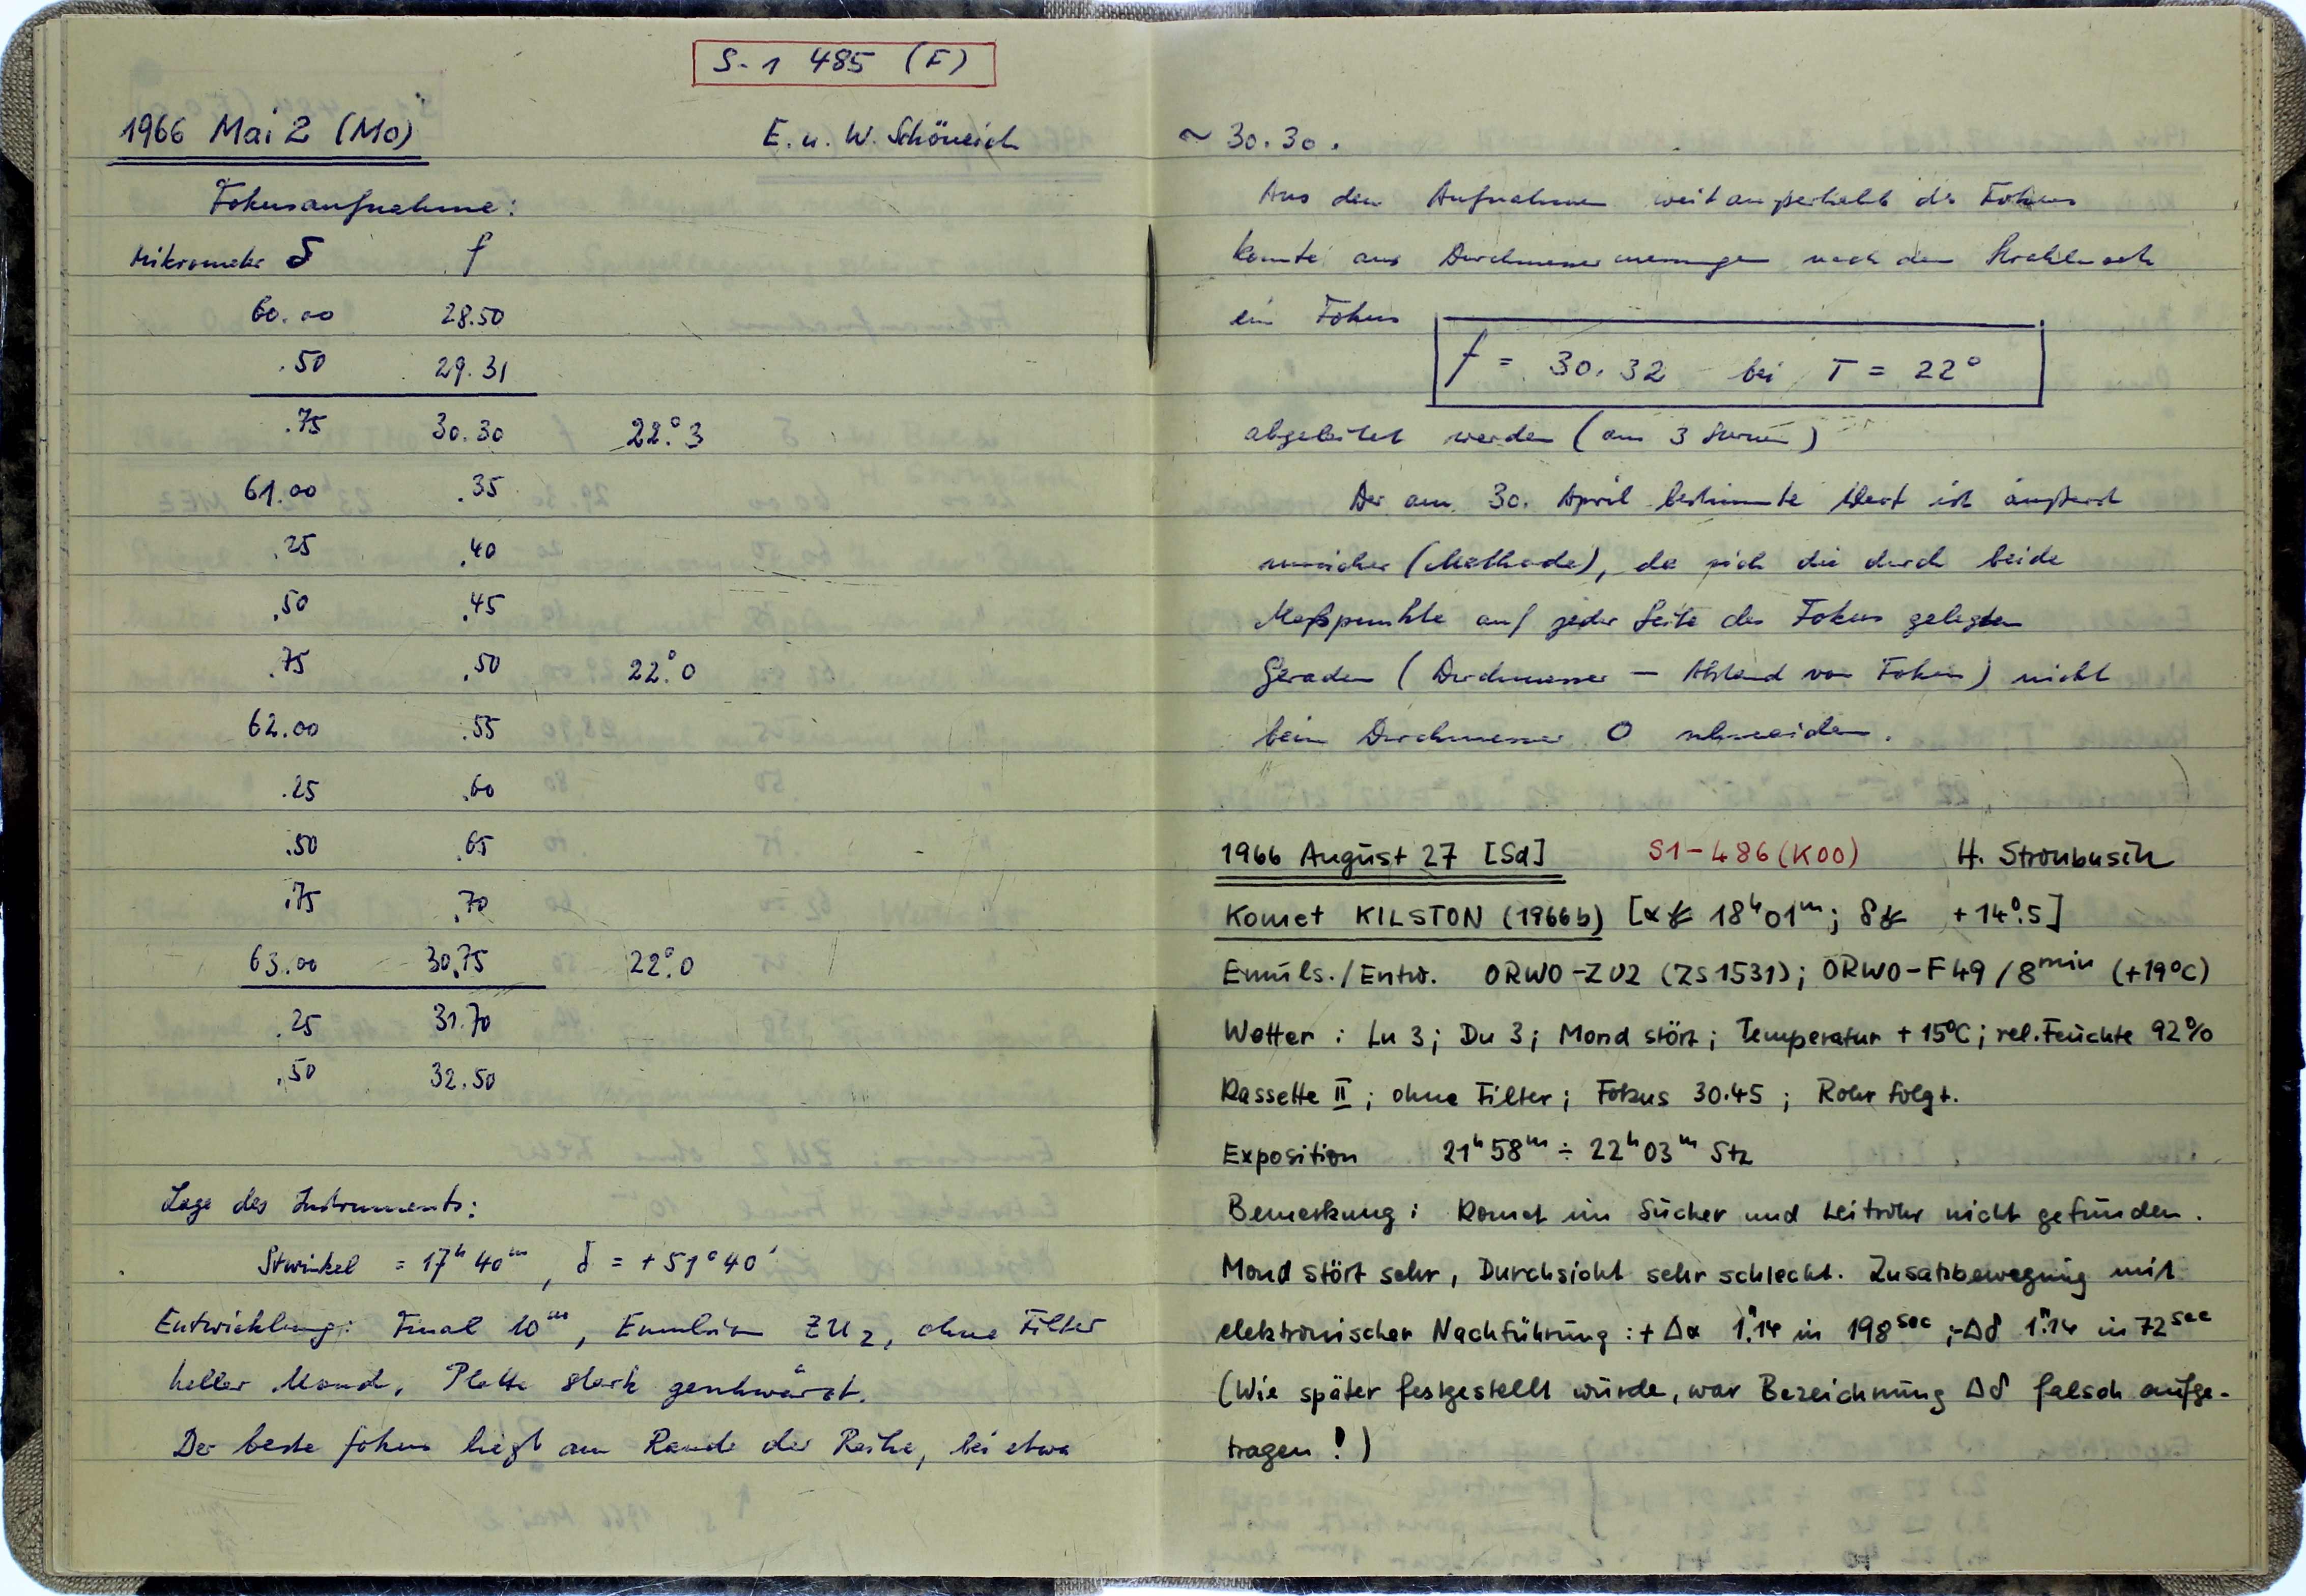 S-1 485 (F)
1966 Mai 2 (Mo) E. u. W. Schöneich
Fokusaufnahme:
Mikrometer δ f
60.00 28.50
.50 29.31
.75 30.30 22.°3
61.00 .35
.25 .40
.50 .45
.75 .50 22.°0
62.00 .55
.25 .60
.50 .65
.75 .70
63.00 30.75 22.°0
.25 31.70
.50 32.50
Lage des Instruments:
Stwinkel = 17ʰ 40ᵐ, δ = +51°40'
Entwicklung: Final 10ᵐ, Emulsion ZU₂, ohne Filter
heller Mond, Platte stark geschwärzt.
Der beste Fokus liegt am Rande der Reihe, bei etwa
~ 30.30.
Aus den Aufnahmen weit außerhalb des Fokus
konnte aus Durchmessermessungen nach dem
ein Fokus
f = 30.32 bei T = 22°
abgeleitet werden (aus 3 Sternen)
Der am 30. April bestimmte Wert ist äußerst
unsicher (Methode), da sich die durch beide
Meßpunkte auf jeder Seite des Fokus gelegten
Geraden (Durchmesser — Abstand vom Fokus) nicht
beim Durchmesser 0 schneiden.
1966 August 27 [Sa] S1-486 (K00) H. Strohbusch
Komet KILSTON (1966b) [α☄ 18ʰ01ᵐ; δ☄ +14°.5]
Emuls./Entw. ORWO-ZU2 (ZS1531); ORWO-F49/8ᵐⁱⁿ (+19°C)
Wetter: Lu 3; Du 3; Mond stört; Temperatur +15°C; rel. Feuchte 92%
Kassette II; ohne Filter; Fokus 30.45; Rohr folgt.
Exposition 21ʰ58ᵐ ÷ 22ʰ03ᵐ Stz
Bemerkung: Komet im Sucher und Leitrohr nicht gefunden.
Mond stört sehr, Durchsicht sehr schlecht. Zusatzbewegung mit
elektronischer Nachführung: +Δα 1".14 in 198ˢᵉᶜ; -Δδ 1".14 in 72ˢᵉᶜ
(Wie später festgestellt wurde, war Bezeichnung Δδ falsch aufge-
tragen!)